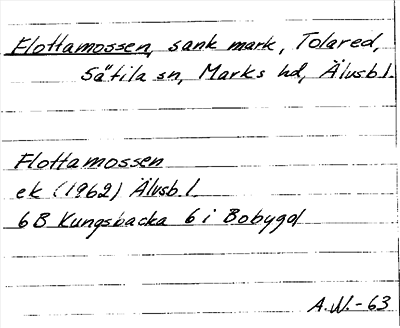 Flottamossen, sank mark, Tolared,
Sätila sn, Marks hd, Älvsb.l.
Flottamossen
ek (1962) Älvsb.l.
6B Kungsbacka 6 i Bobygd
A.W.-63